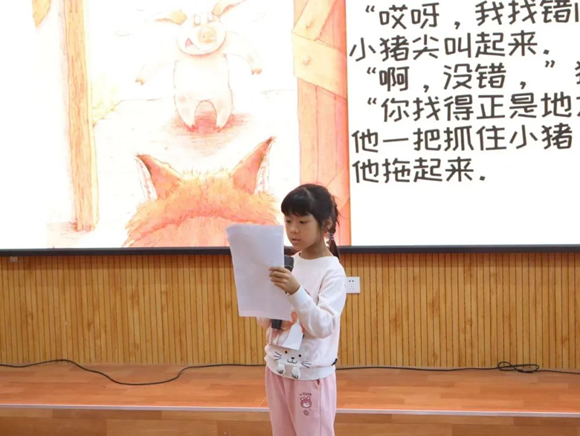 “哎呀，我找错
小猪尖叫起来．
“啊，没错，”
“你找得正是地
他一把抓住小猪
他拖起来．